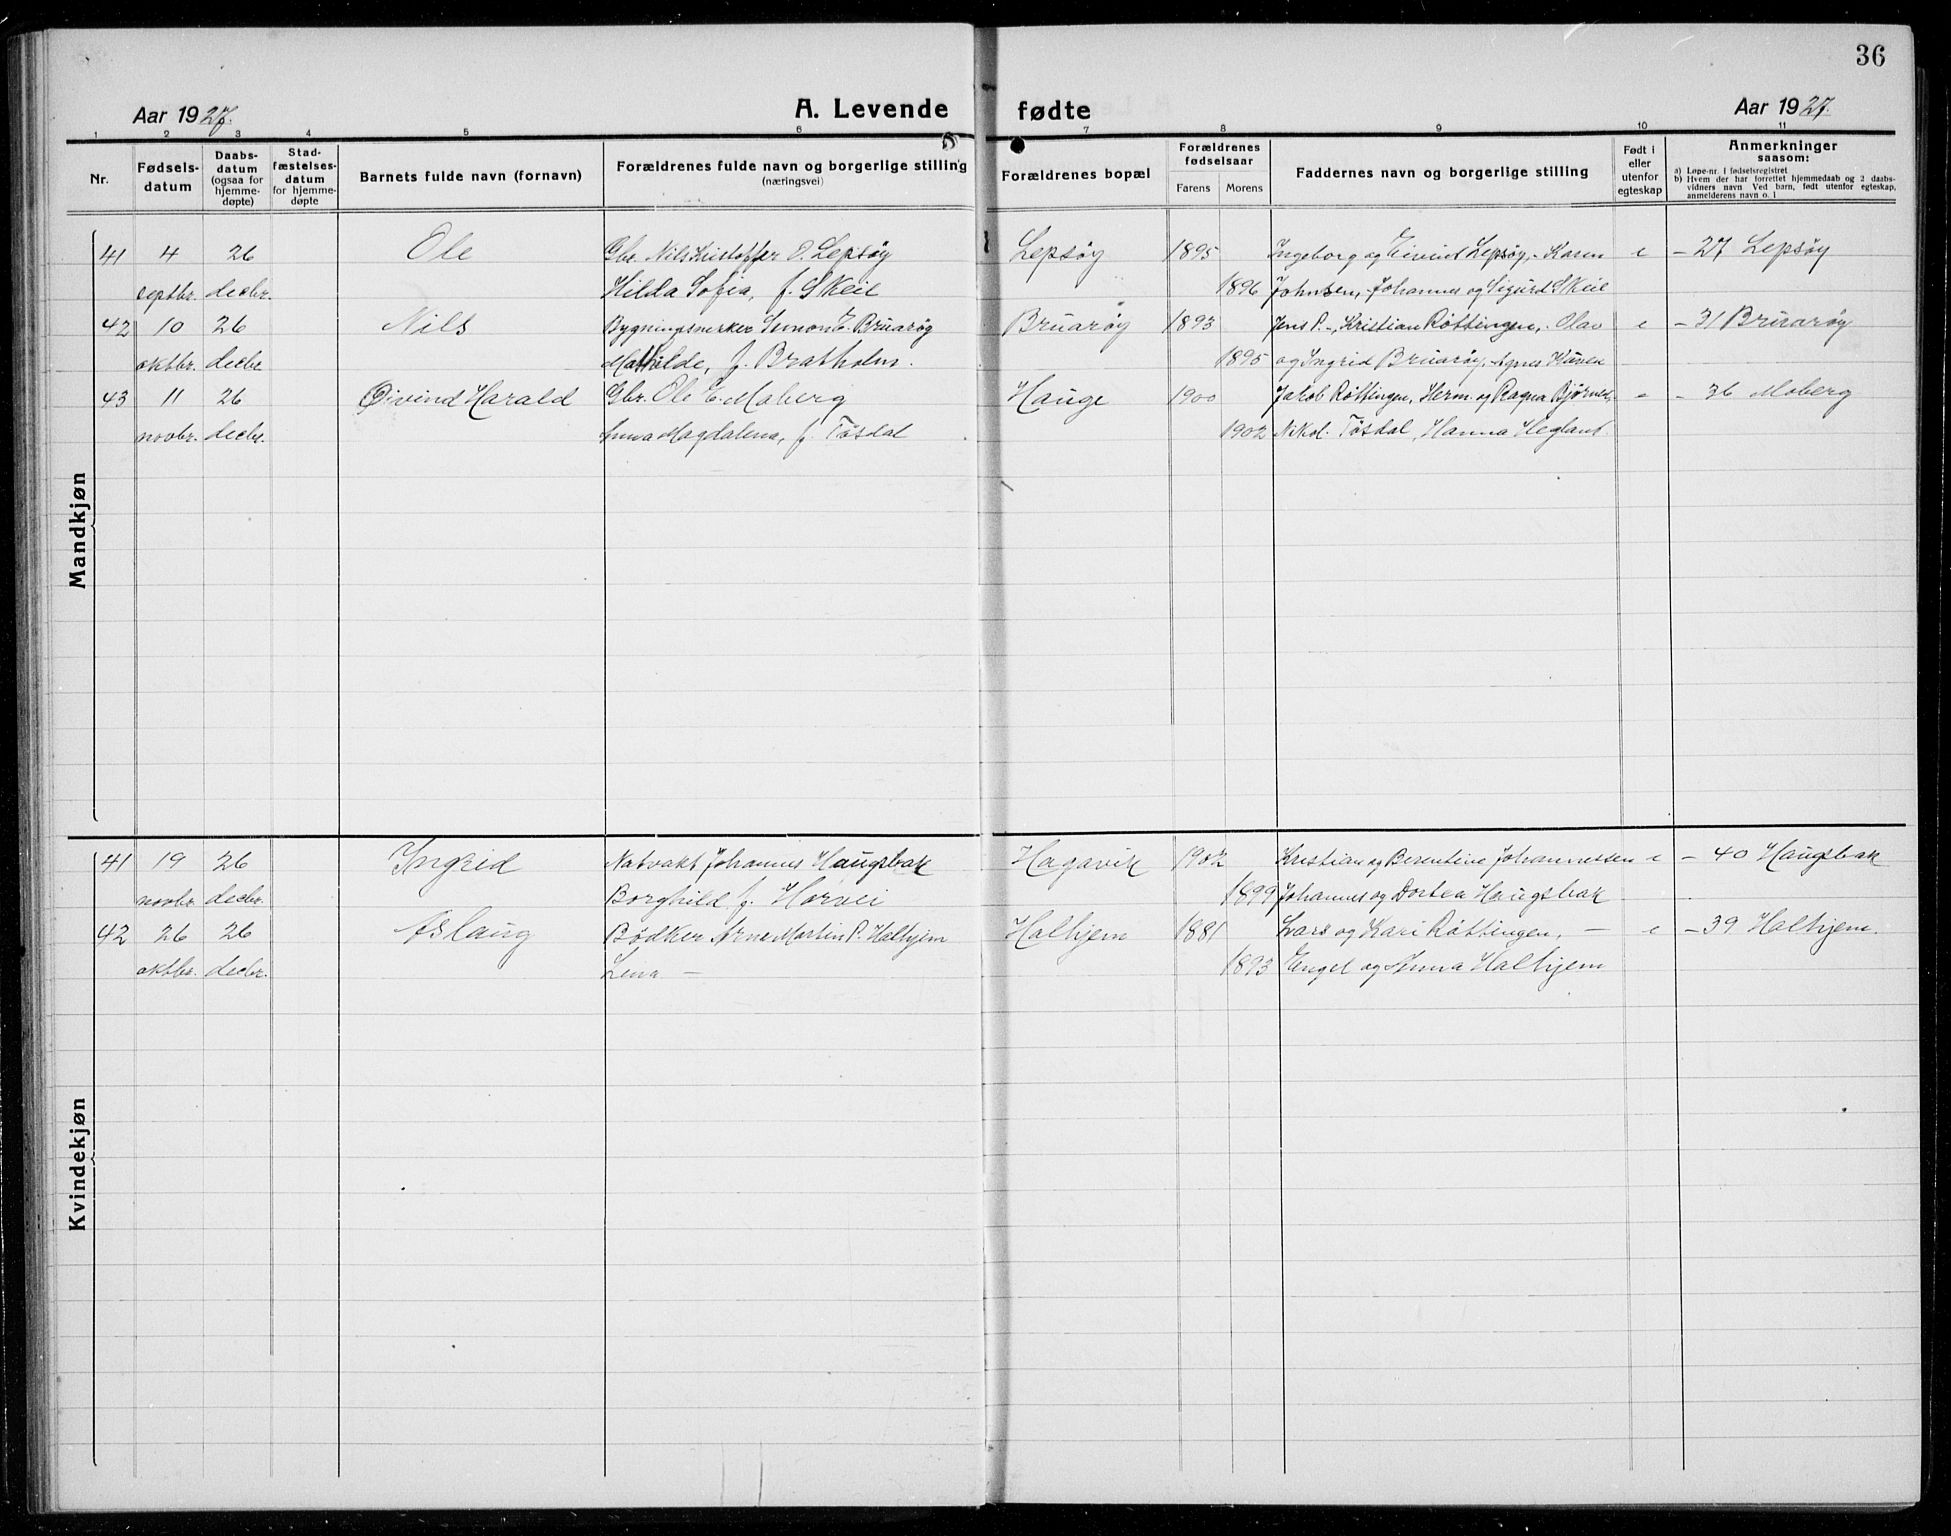 36
Aar 1927. A. Levende fødte Aar 1927.
1 2 3 4 5 6 7 8 9 10 11
Nr.
Fødselsdatum
Daabsdatum (ogsaa for hjemmedøpte)
Stadfæstelsesdatum for hjemmedøpte
Barnets fulde navn (fornavn)
Forældrenes fulde navn og borgerlige stilling
(næringsvei)
Forældrenes bopæl
Forældrenes fødselsaar
Farens Morens
Faddernes navn og borgerlige stilling
Født i eller utenfor egteskap
Anmerkninger
saasom:
a) Løpe-nr. i fødselsregistret
b) Hvem der har forrettet hjemmedaab og 2 daabsvidners navn Ved barn, født utenfor egteskap, anmelderens navn o. l
Mandkjøn
41 4 26 Ole Gbr. Nils Kristoffer O. Lepsøy Lepsøy 1895 Ingeborg og Eivind Lepsøy, - Karen e - 27 Lepsøy
septbr. decbr. Hilda Sofia, f. Skeie 1896 Johnsen, Johannes og Sigurd Skeie
42 10 26 Nils Simon E. Bruarøy Bruarøy 1893 Jens P. -, Kristian Røttingen, - Olav e - 31 Bruarøy
oktbr. decbr. Mathilde, f. Bratholm. 1895 og Ingrid Bruarøy, Agnes
43 11 26 Øivind Harald Gbr. Ole E. Moberg Hauge 1900 Jakob Røttingen, Herm. og Ragna Bjørnen, - - 36 Moberg
novbr. decbr. Anna Magdalena, f. Tøsdal 1902 Nikol. Tøsdal, Hanna Hegland.
Kvindekjøn
41 19 26 Ingrid Natvakt Johannes Haugsbak Hagavik 1902 Kristian og Berentine Johannessen e - 40 Haugsbak
novbr. decbr. Borghild f. Horvei 1899 Johannes og Dortea Haugsbak
42 26 26 Aslaug Bødker Arne Martin P. Halhjem Halhjem 1881 Lars og Kari Røttingen, - e - 39 Halhjem.
oktbr. decbr. Lina - 1893 Engel og Anna Halhjem